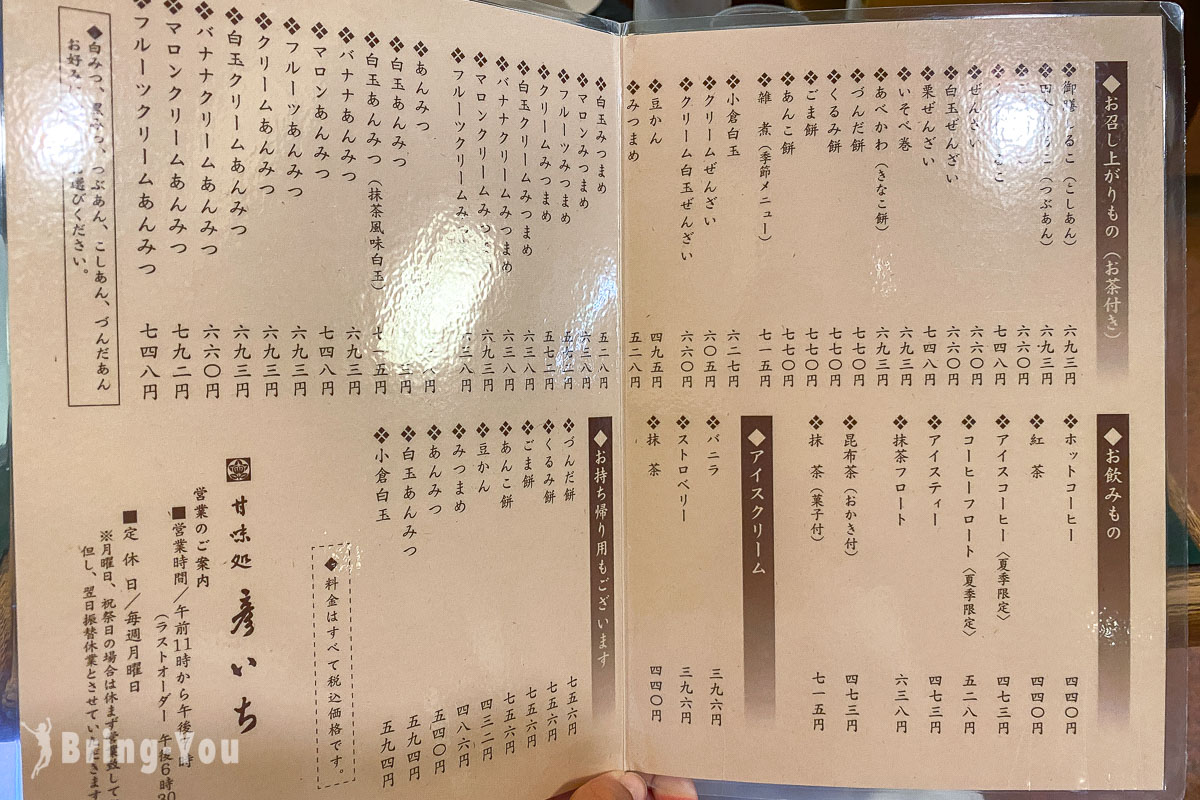 ◆お召し上がりもの（お茶付き）
御膳しるこ（こしあん） 六九三円
（つぶあん） 六九三円
六六〇円
七四八円
ぜんざい 六六〇円
白玉ぜんざい 六六〇円
栗ぜんざい 七四八円
いそべ巻 六九三円
あべかわ（きなこ餅） 六九三円
づんだ餅 七七〇円
くるみ餅 七七〇円
ごま餅 七七〇円
あんこ餅 七七〇円
雑煮（季節メニュー） 七一五円
小倉白玉 六二七円
クリームぜんざい 六〇五円
クリーム白玉ぜんざい 六六〇円
豆かん 四九五円
みつまめ 五二八円
白玉みつまめ 五二八円
マロンみつまめ 六三八円
フルーツみつまめ
クリームみつまめ 五七二円
白玉クリームみつまめ 六三八円
バナナクリームみつまめ 六三八円
マロンクリームみつ 六九三円
フルーツクリームみ 六三八円
あんみつ
白玉あんみつ
白玉あんみつ（抹茶風味白玉） 七一五円
バナナあんみつ 六九三円
マロンあんみつ 七四八円
フルーツあんみつ 六九三円
クリームあんみつ 六九三円
白玉クリームあんみつ 六九三円
バナナクリームあんみつ 六六〇円
マロンクリームあんみつ 七九二円
フルーツクリームあんみつ 七四八円
◆白みつ、つぶあん、こしあん、づんだあん
お好み 選びください。
◆お飲みもの
ホットコーヒー 四四〇円
紅茶 四四〇円
アイスコーヒー〈夏季限定〉 四七三円
コーヒーフロート〈夏季限定〉 五二八円
アイスティー 四七三円
抹茶フロート 六三八円
昆布茶（おかき付） 四七三円
抹茶（菓子付） 七一五円
◆アイスクリーム
バニラ 三九六円
ストロベリー 三九六円
抹茶 四四〇円
◆お持ち帰り用もございます
づんだ餅 七五六円
くるみ餅 七五六円
ごま餅 七五六円
あんこ餅 七五六円
豆かん 四三二円
みつまめ 四八六円
あんみつ 五四〇円
白玉あんみつ 五九四円
小倉白玉 五九四円
◆料金はすべて税込価格です。
甘味処 彦いち
営業のご案内
■営業時間／午前11時から午後 時
（ラストオーダー 午後6時30
■定休日／毎週月曜日
※月曜日、祝祭日の場合は休まず営業致して
但し、翌日振替休業とさせていただきます
Bring You